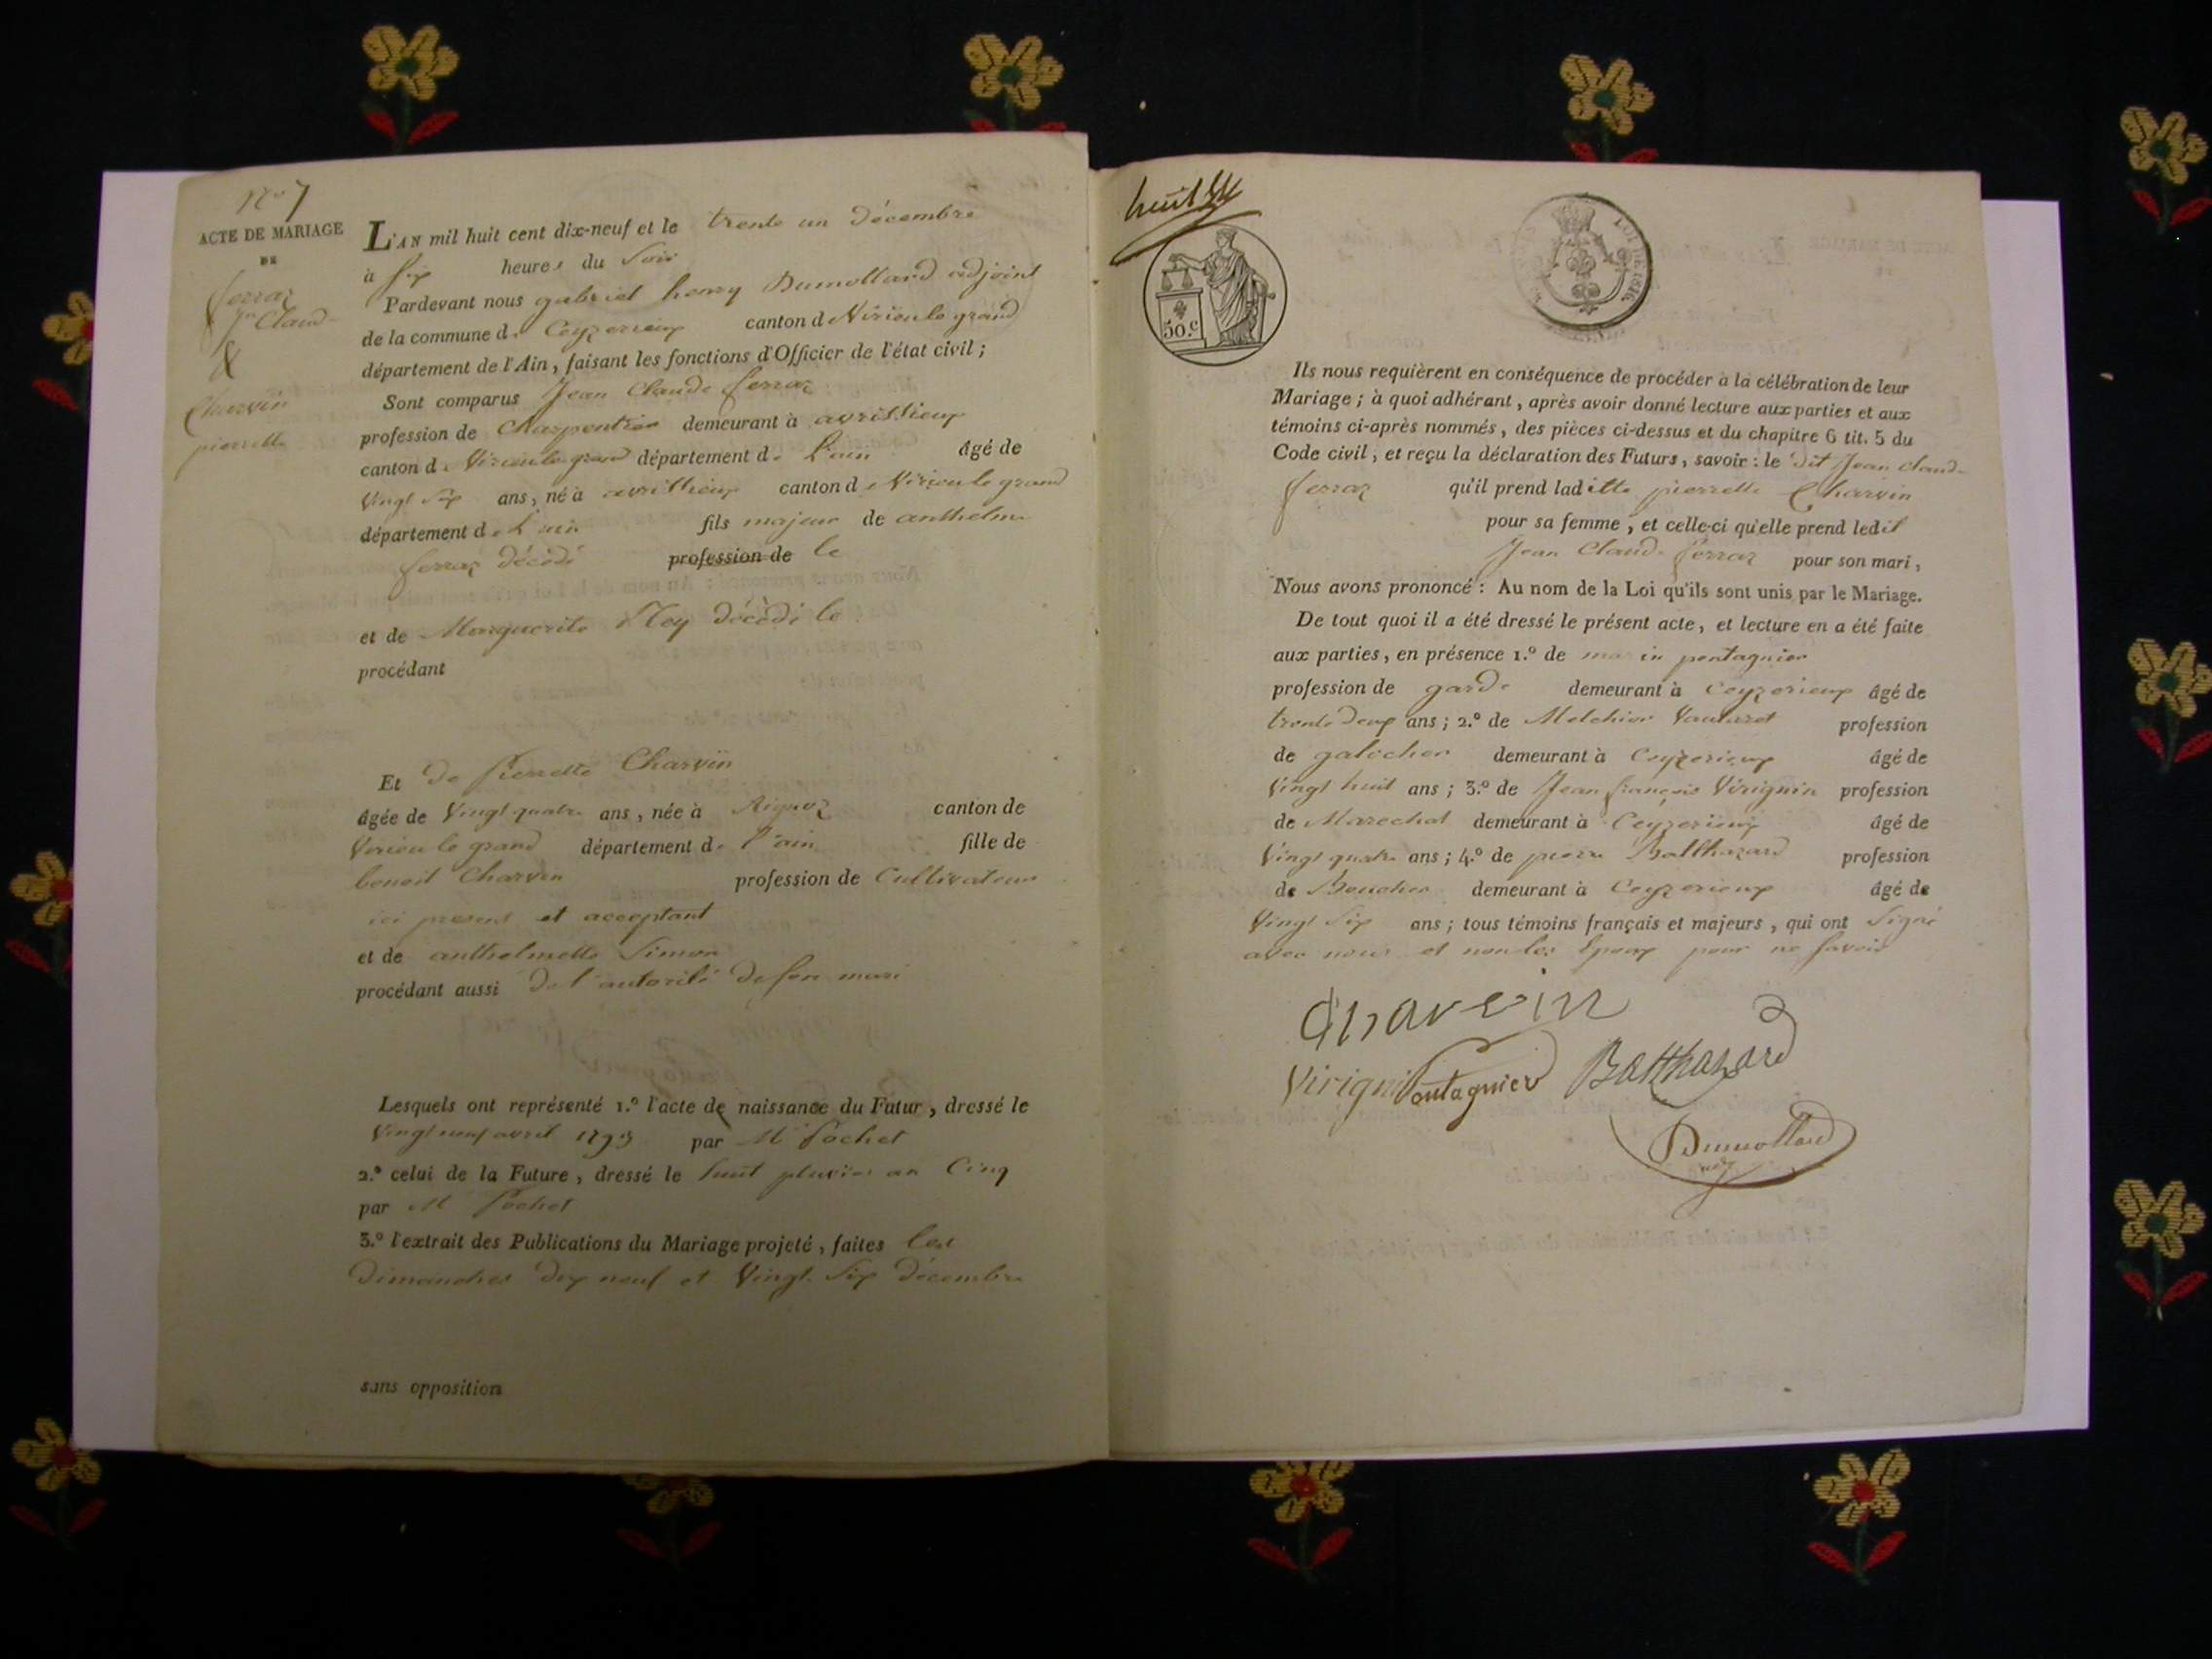 N.º 7
ACTE DE MARIAGE
DE
ferraz
Jn Claude
&
Charvin
pierrette
L'AN mil huit cent dix-neuf et le trente un décembre
à six heures du soir
Pardevant nous gabriel henry Dumollard adjoint
de la commune de Ceyzerieux canton de Virieu le grand
département de l'Ain, faisant les fonctions d'Officier de l'état civil;
Sont comparus Jean Claude ferraz
profession de Charpentier demeurant à avrissieux
canton de Virieu le grand département de L'ain âgé de
Vingt six ans, né à avrissieux canton de Virieu le grand
département de L'ain fils majeur de anthelme
ferraz décédé profession de le
et de Marguerite Rey décédé le
procédant
Et de Pierrette Charvin
âgée de Vingt quatre ans, née à canton de
Virieu le grand département de l'ain fille de
benoit Charvin profession de Cultivateur
ici present et acceptant
et de anthelmette Simon
procédant aussi de l'autorité de son mari
Lesquels ont représenté 1.º l'acte de naissance du Futur, dressé le
Vingt neuf avril 1793 par Mr Pochet
2.º celui de la Future, dressé le huit pluvios an Cinq
par Mr Pochet
3.º l'extrait des Publications du Mariage projeté, faites les
Dimanches dix neuf et Vingt Six décembre
sans opposition
huit
50.c
Ils nous requièrent en conséquence de procéder à la célébration de leur
Mariage; à quoi adhérant, après avoir donné lecture aux parties et aux
témoins ci-après nommés, des pièces ci-dessus et du chapitre 6 tit. 5 du
Code civil, et reçu la déclaration des Futurs, savoir: le dit Jean Claude
ferraz qu'il prend laditte pierrette Charvin
pour sa femme, et celle-ci qu'elle prend ledit
Jean Claude ferraz pour son mari,
Nous avons prononcé: Au nom de la Loi qu'ils sont unis par le Mariage.
De tout quoi il a été dressé le présent acte, et lecture en a été faite
aux parties, en présence 1.º de pontagnier
profession de garde demeurant à Ceyzerieux âgé de
trente deux ans; 2.º de Melchior profession
de galocher demeurant à Ceyzerieux âgé de
Vingt huit ans; 3.º de Jean françois Virignin profession
de Marechal demeurant à Ceyzerieux âgé de
Vingt quatre ans; 4.º de pierre Balthazard profession
de Boucher demeurant à Ceyzerieux âgé de
Vingt Six ans; tous témoins français et majeurs, qui ont Signé
avec nous et non les Epoux pour ne savoir
Charvin
Virignin Pontagnier Balthazard
Dumollard
adj